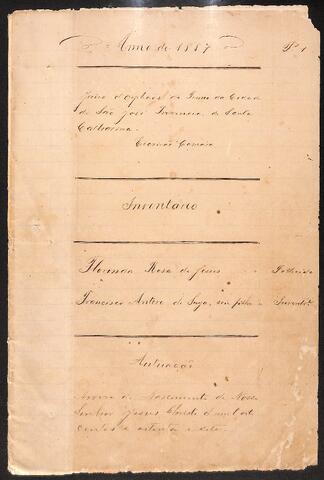 Anno de 1887
Juizo d'Orphãos do Termo da Cidade
de São José Provincia de Santa
Catharina.
Escrivão Camara
Inventário
Florinda Rosa de Jesus Fallecida
Francisco Antero de Souza, seu filho Invente.
Autuação
Anno do Nascimento de Nosso
Senhor Jesus Christo d'mil oito
centos e oitenta e sete